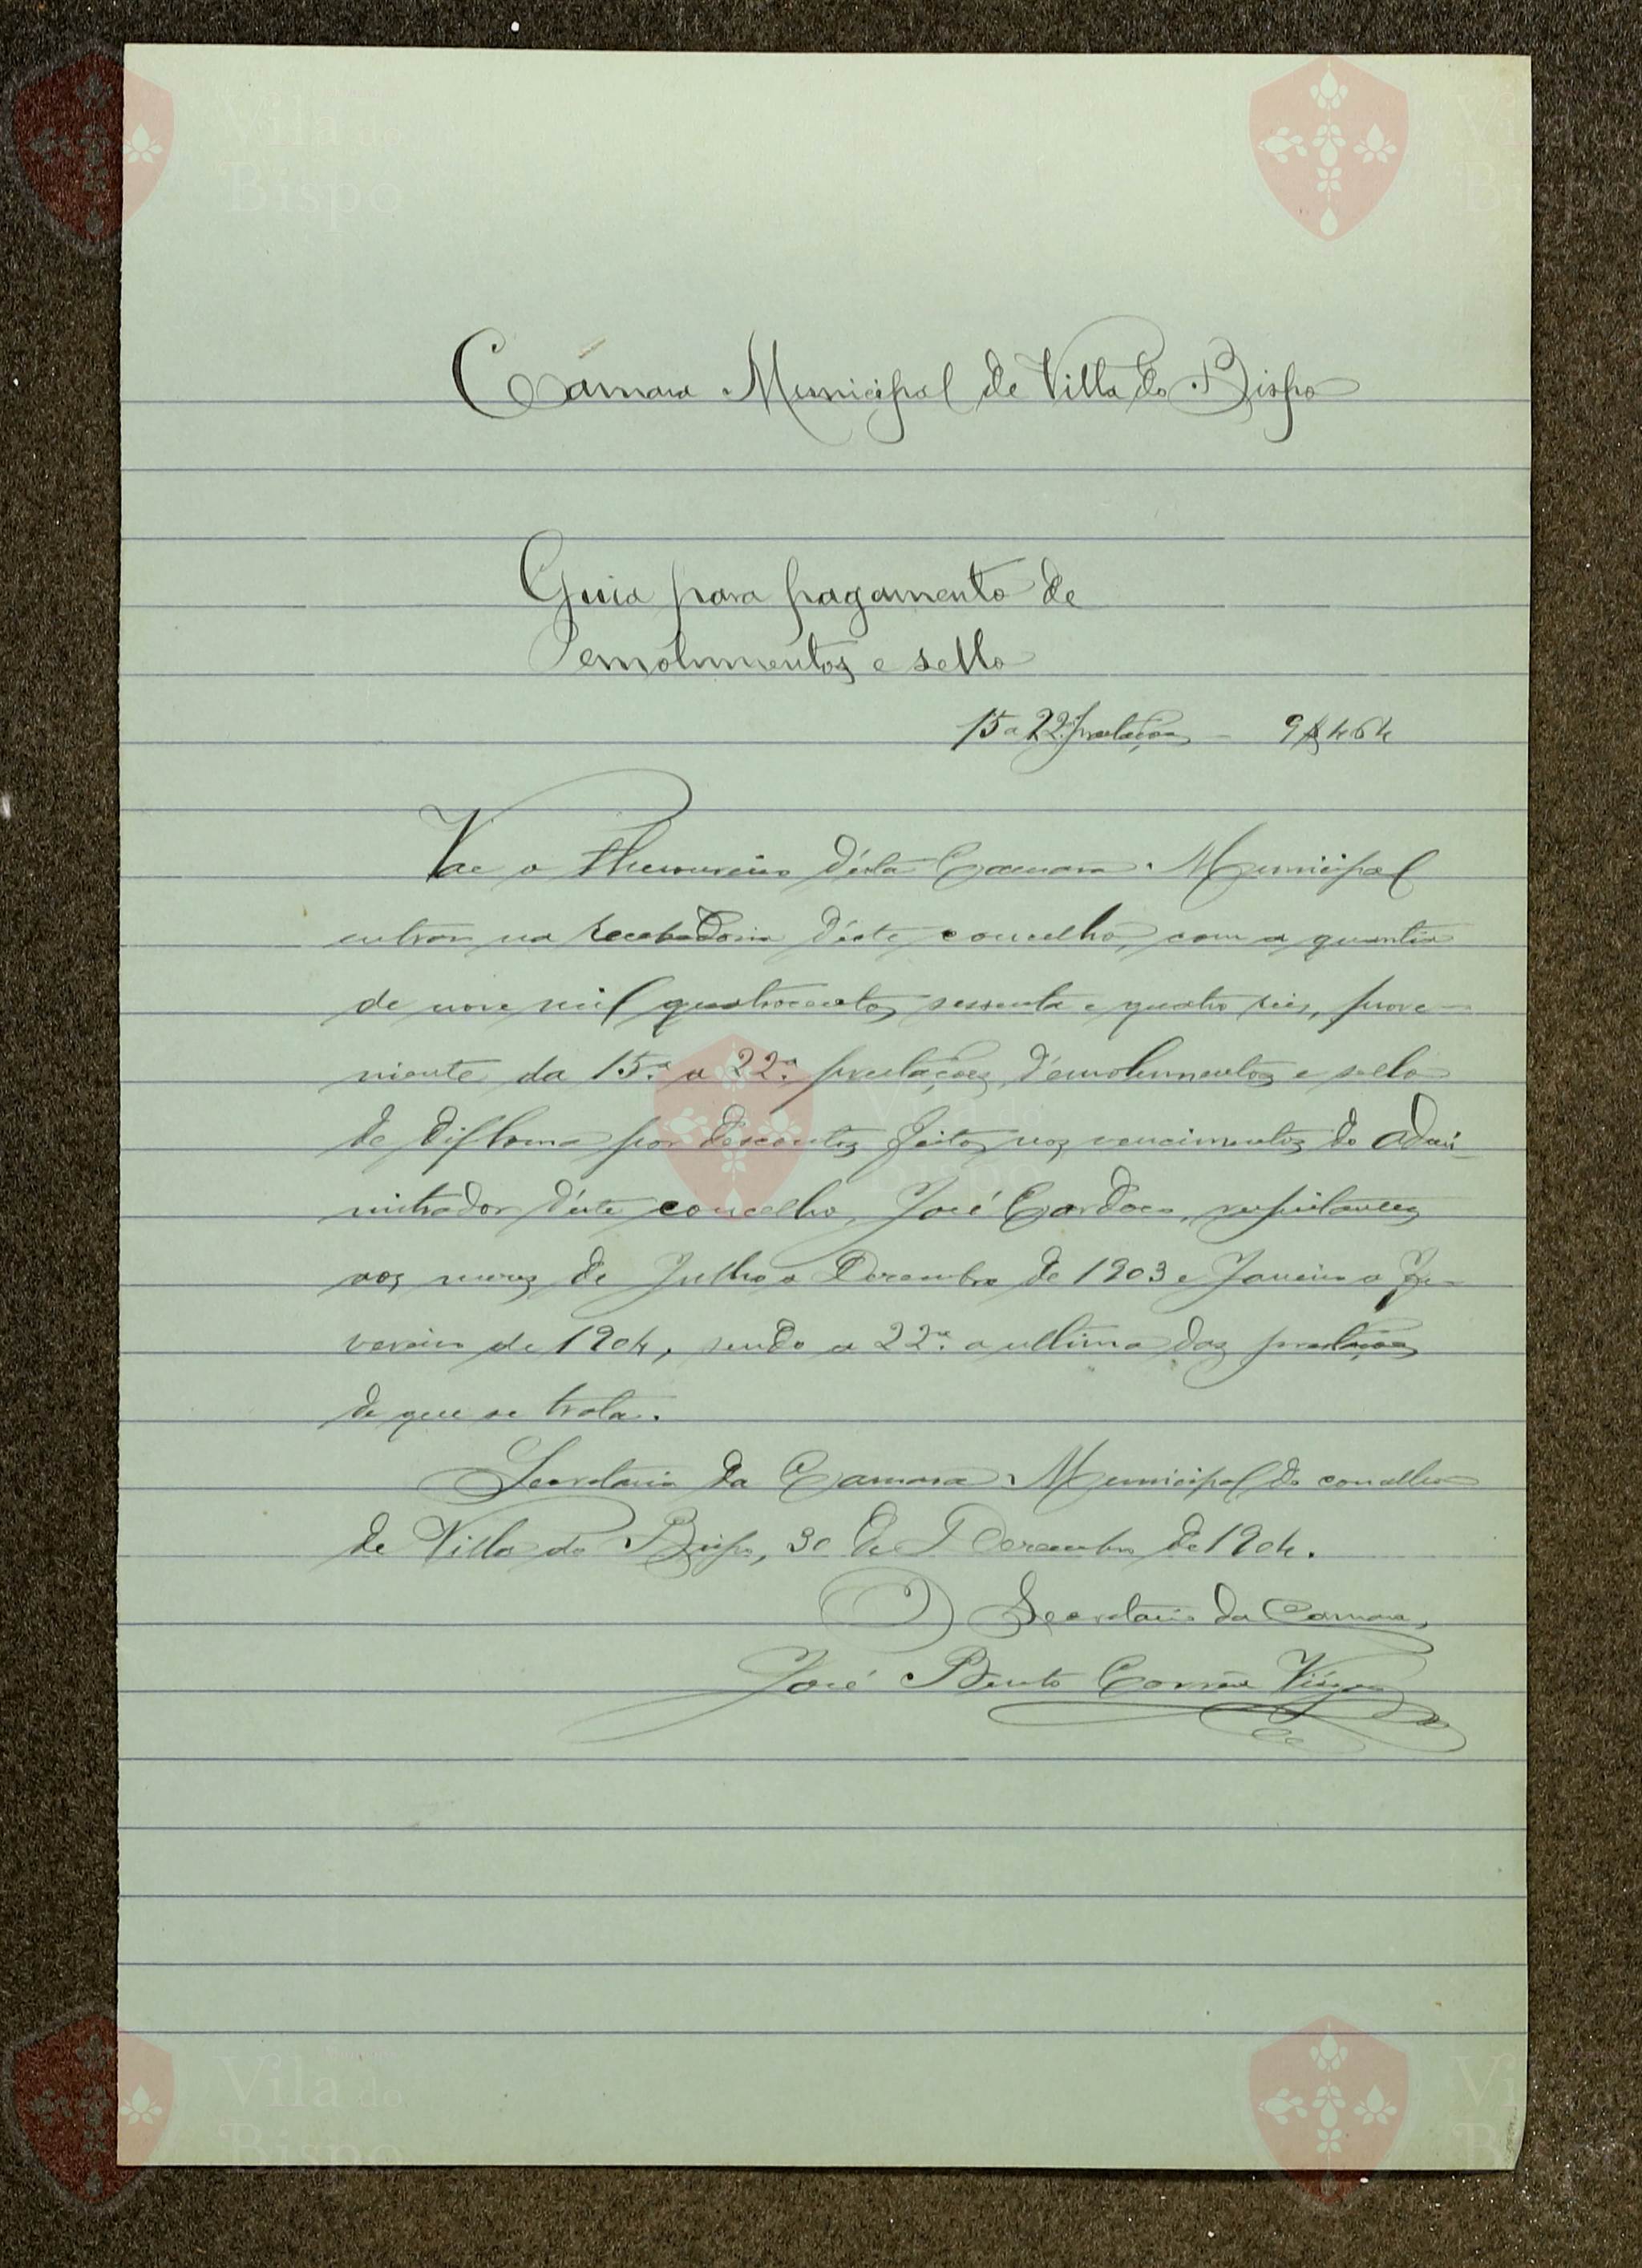 Câmara Municipal de Villa do Bispo
Guia para pagamento de
emolumentos e sello
15 a 22 prestações - 9$464
Vae o thesoureiro d'esta Camara Municipal
entrar na recebedoria d'este concelho, com a quantia
de nove mil quatrocentos sessenta e quatro reis, prove-
niente da 15.ª a 22.ª prestações, d'emolumentos e sello
de diploma por descontos feitos nos vencimentos do admi-
nistrador d'este concelho, José Cardoso, respeitantes
aos mezes de Julho a Dezembro de 1903 e Janeiro a Fe-
vereiro de 1904, sendo a 22.ª a ultima das prestações
de que se trata.
Secretaria da Camara Municipal do concelho
de Villa do Bispo, 30 de Dezembro de 1904.
O Secretario da Camara,
José Bento Corrêa Viégas
Vila do
Bispo